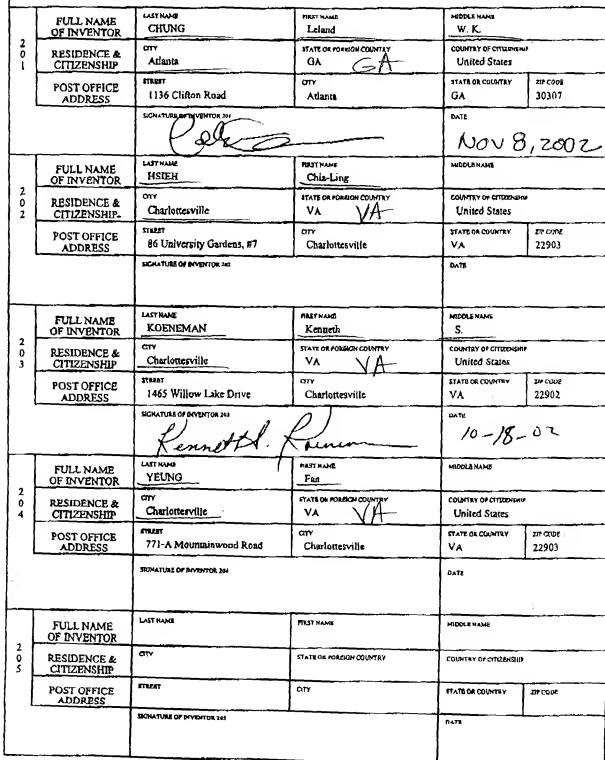 FULL NAME OF INVENTOR LAST NAME CHUNG FIRST NAME Leland MIDDLE NAME W. K.
201 RESIDENCE & CITIZENSHIP CITY Atlanta STATE OR FOREIGN COUNTRY GA GA COUNTRY OF CITIZENSHIP United States
POST OFFICE ADDRESS STREET 1136 Clifton Road CITY Atlanta STATE OR COUNTRY GA ZIP CODE 30307
SIGNATURE OF INVENTOR 201 DATE Nov 8, 2002
FULL NAME OF INVENTOR LAST NAME HSIEH FIRST NAME Chia-Ling MIDDLE NAME
202 RESIDENCE & CITIZENSHIP CITY Charlottesville STATE OR FOREIGN COUNTRY VA VA COUNTRY OF CITIZENSHIP United States
POST OFFICE ADDRESS STREET 86 University Gardens, #7 CITY Charlottesville STATE OR COUNTRY VA ZIP CODE 22903
SIGNATURE OF INVENTOR 202 DATE
FULL NAME OF INVENTOR LAST NAME KOENEMAN FIRST NAME Kenneth MIDDLE NAME S.
203 RESIDENCE & CITIZENSHIP CITY Charlottesville STATE OR FOREIGN COUNTRY VA VA COUNTRY OF CITIZENSHIP United States
POST OFFICE ADDRESS STREET 1465 Willow Lake Drive CITY Charlottesville STATE OR COUNTRY VA ZIP CODE 22902
SIGNATURE OF INVENTOR 203 DATE 10-18-02
FULL NAME OF INVENTOR LAST NAME YEUNG FIRST NAME Fan MIDDLE NAME
204 RESIDENCE & CITIZENSHIP CITY Charlottesville STATE OR FOREIGN COUNTRY VA VA COUNTRY OF CITIZENSHIP United States
POST OFFICE ADDRESS STREET 771-A Mountainwood Road CITY Charlottesville STATE OR COUNTRY VA ZIP CODE 22903
SIGNATURE OF INVENTOR 204 DATE
FULL NAME OF INVENTOR LAST NAME FIRST NAME MIDDLE NAME
205 RESIDENCE & CITIZENSHIP CITY STATE OR FOREIGN COUNTRY COUNTRY OF CITIZENSHIP
POST OFFICE ADDRESS STREET CITY STATE OR COUNTRY ZIP CODE
SIGNATURE OF INVENTOR 205 DATE